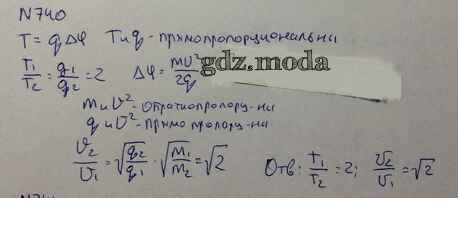 N740
T = qΔφ  T и q - прямопропорциональны
T₁/T₂ = q₁/q₂ = 2  Δφ = mυ²/2q
gdz.moda
m и υ² - обратнопропорц-ны
q и υ² - прямо пропорц-ны
υ₂/υ₁ = √(q₂/q₁) · √(m₁/m₂) = √2  Отв: T₁/T₂ = 2; υ₂/υ₁ = √2